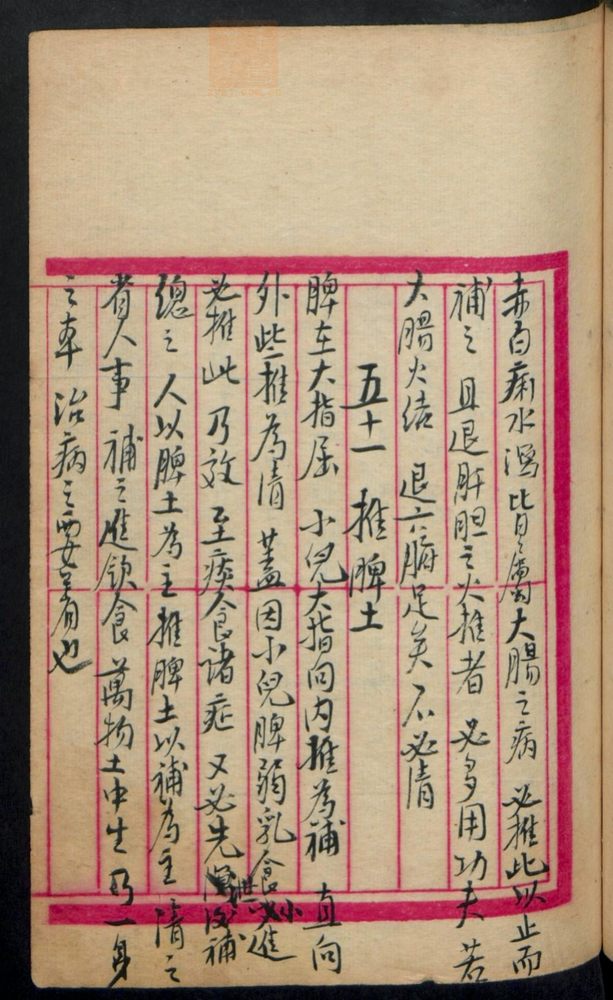 赤白痢水瀉皆屬大腸之病 必推此以止而
補之 且退肝胆之火推者 必多用功夫 若
大腸火结 退六腑足矣 不必清
五十一 推脾土
脾在大指屈 小兒大指向内推為補 直向
外些推為清 蓋因小兒脾弱乳食少進
必推此 乃效 至痰食诸症 又必先後補
總之 人以脾土為主 推脾土以補為主 清之
者人事 補之進飲食 萬物土中生 乃一身
之本 治病之要着也